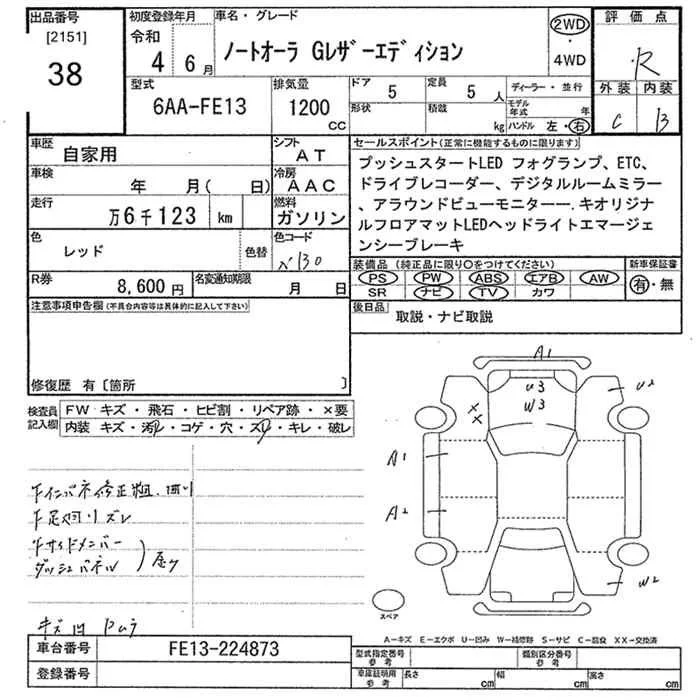 出品番号 初度登録年月 車名・グレード 2WD 評価点
[2151] 令和 ・ R
38 4 6月 ノートオーラ Gレザーエディション 4WD
型式 排気量 ドア 5 定員 5人 ディーラー・並行 外装 内装
6AA-FE13 1200 CC 形状 積載 kg モデル年式 年 C B
ハンドル 左・右
車歴 自家用 シフト AT
車検 年 月( 日) 冷房 AAC
走行 万6千123 km 燃料 ガソリン
色 レッド 色替 色コード
R券 8,600円 名変通知期限 月 日
注意事項申告欄(不具合内容等は具体的に記入して下さい)
修復歴 有〔箇所 〕
セールスポイント(正常に機能するものに限ります)
プッシュスタートLED フォグランプ、ETC、
ドライブレコーダー、デジタルルームミラー
、アラウンドビューモニター―.キオリジナ
ルフロアマットLEDヘッドライトエマージェ
ンシーブレーキ
装備品(純正品に限り○をつけてください) 新車保証書
PS PW ABS エアB AW 有・無
SR ナビ TV カワ
後日品 取説・ナビ取説
検査員記入欄 FW キズ・飛石・ヒビ割・リペア跡・×要
内装 キズ・汚レ・コゲ・穴・スレ・キレ・破レ
A1
U3
W3
U2
××
A1
A2
W2
スペア
Fインパネ修正粗.曲り
F足廻リズレ
Fサイドメンバー
ダッシュパネル
A-キズ E-エクボ U-凹み W-補修跡 S-サビ C-腐食 XX-交換済
車台番号 FE13-224873
登録番号
型式指定番号 参考 類別区分番号 参考
車庫証明用 参考 長さ cm 幅 cm 高さ cm